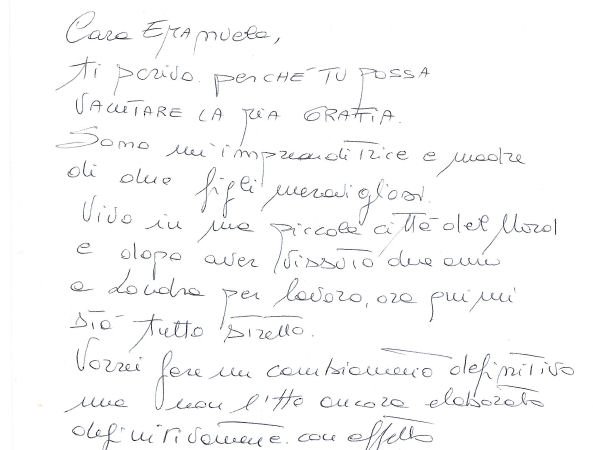 Cara Emanuela,
ti scrivo perchÉ TU POSSA
VALUTARE LA MIA GRAFIA.
Sono un'imprenditrice e madre
di due figli meravigliosi.
Vivo in una piccola città del Nord
e dopo aver vissuto due anni
a Londra per lavoro, ora qui mi
stà tutto stretto.
Vorrei fare un cambiamento definitivo
ma non l'ho ancora elaborato
definitivamente. con affetto